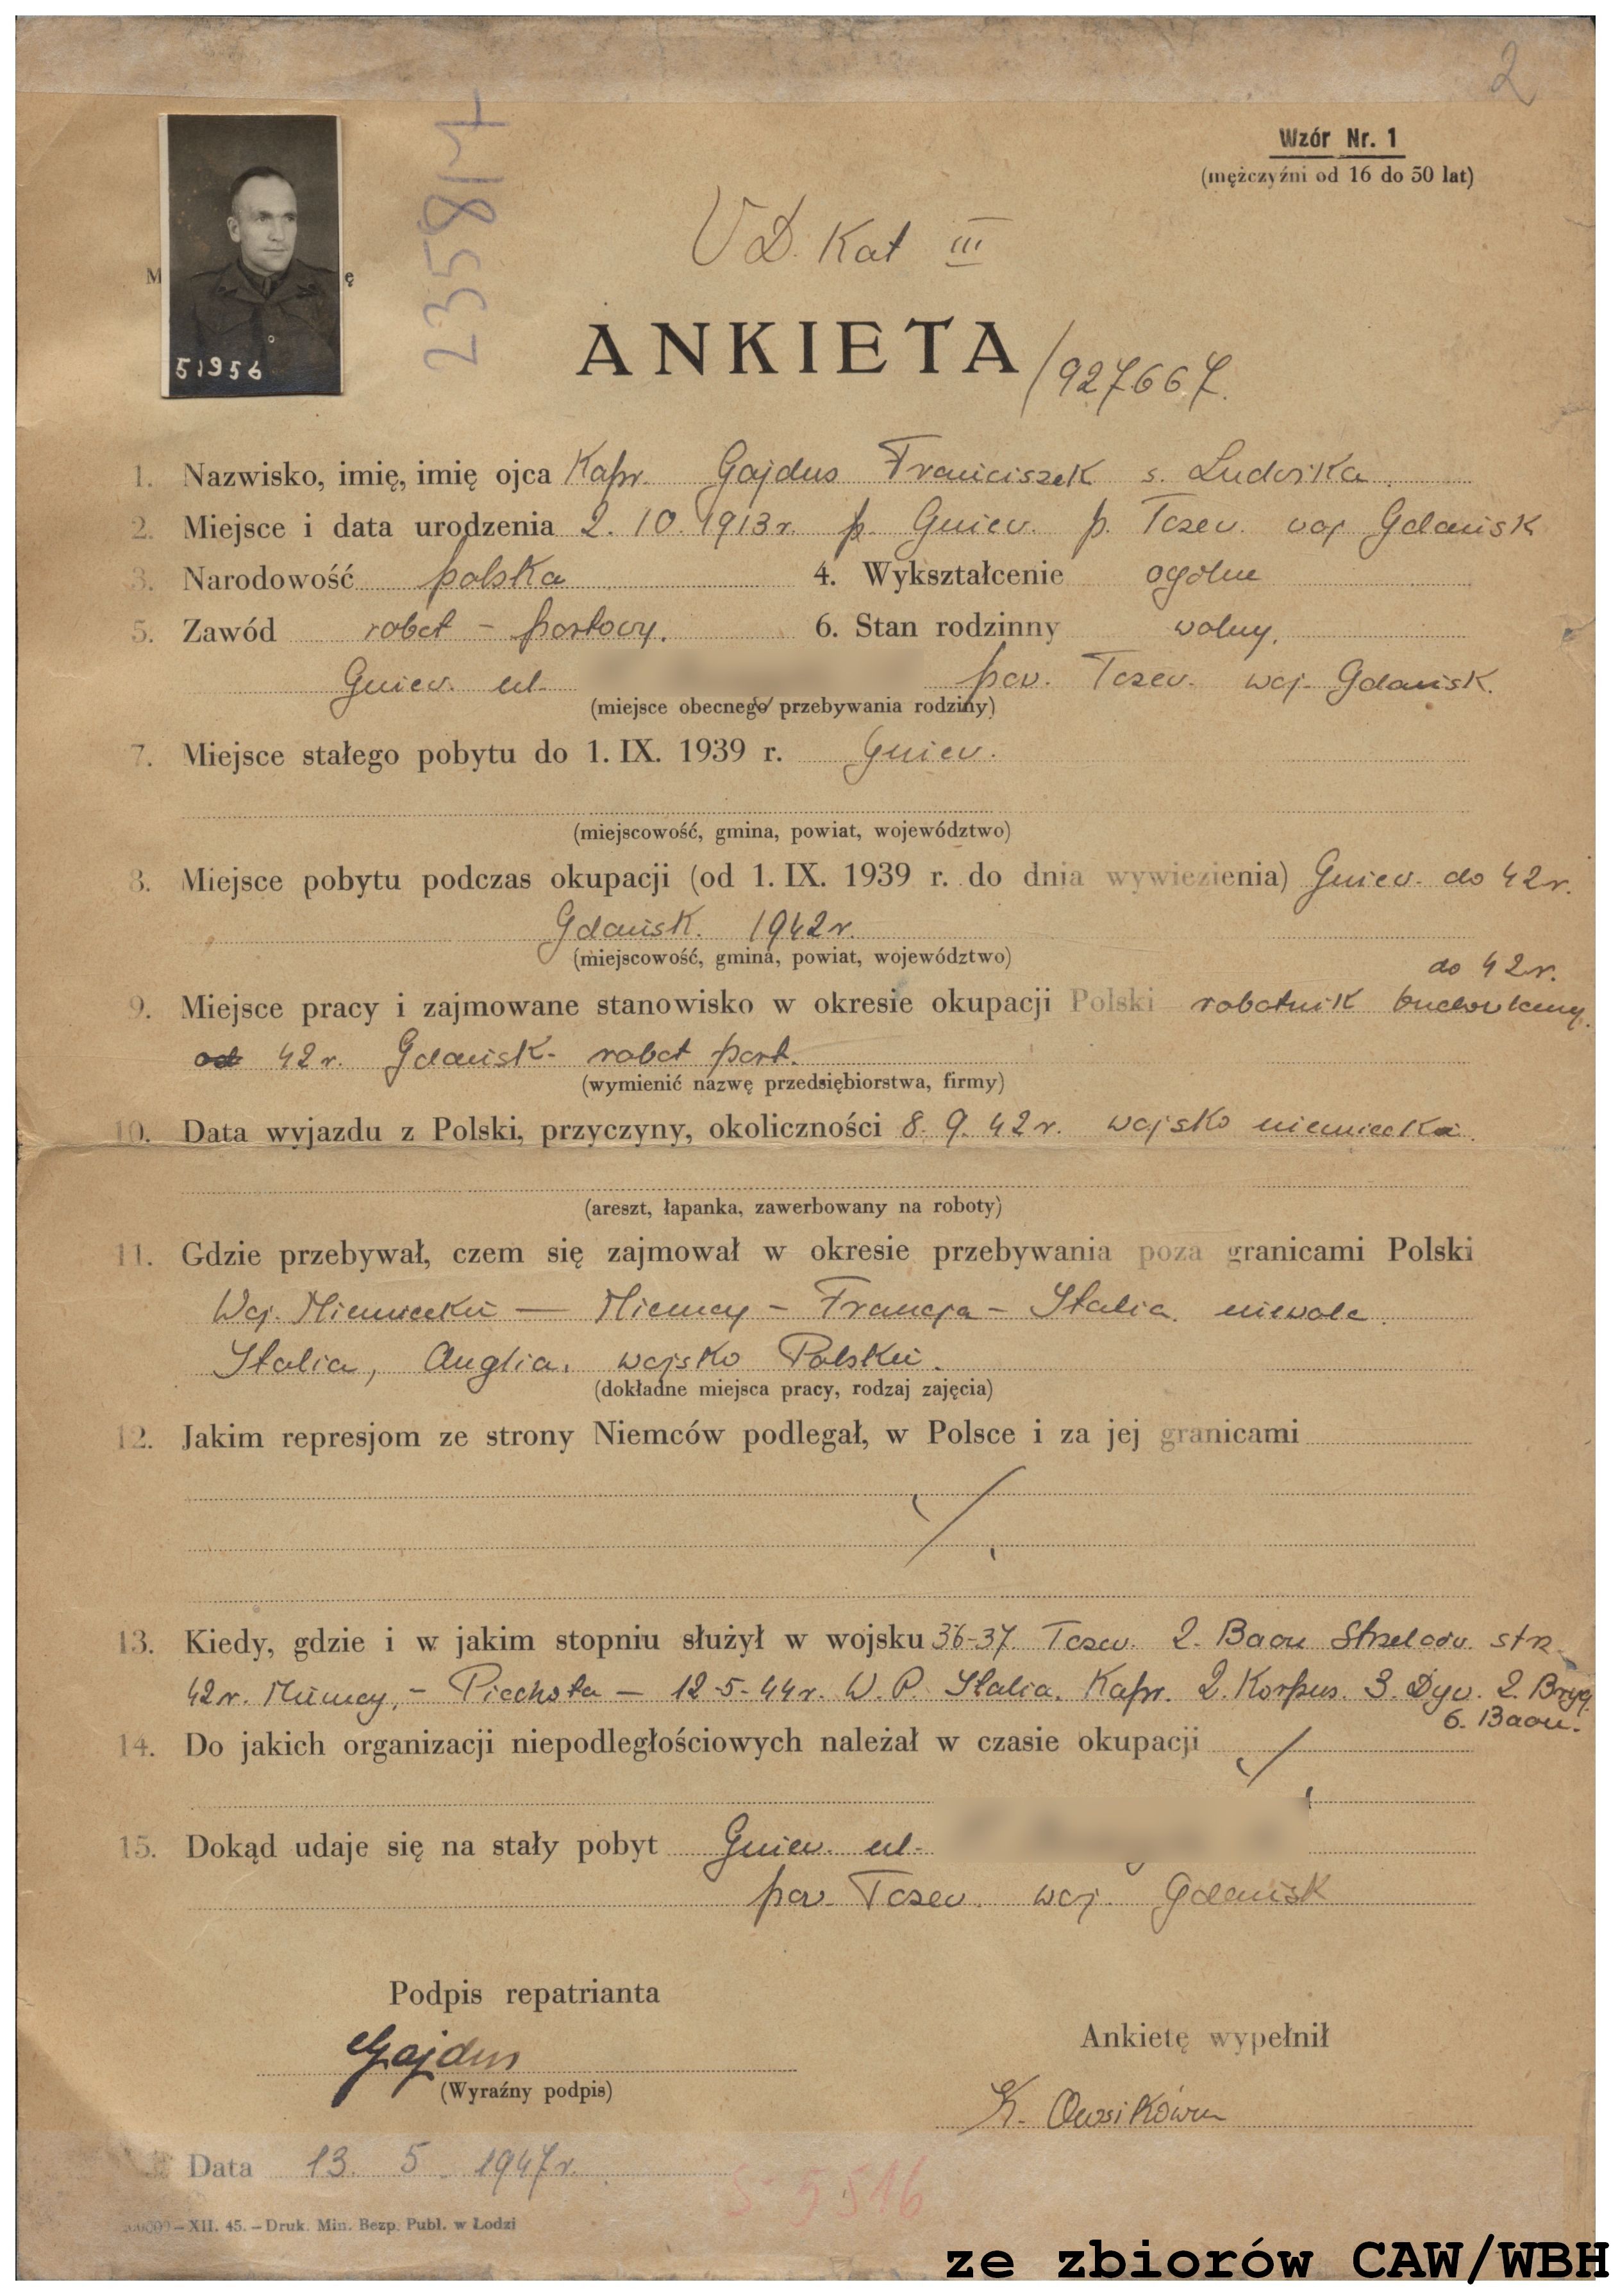 2
Wzór Nr. 1
(mężczyźni od 16 do 50 lat)
2358/4
M ę
51956
VD. Kat III
ANKIETA /927667.
1. Nazwisko, imię, imię ojca Kapr. Gajdus Franciszek s. Ludwika.
2. Miejsce i data urodzenia 2. 10. 1913 r. p. Gniew. p. Tczew. woj Gdańsk
3. Narodowość polska 4. Wykształcenie ogólne
5. Zawód robot - portowy. 6. Stan rodzinny wolny.
Gniew. ul. pow. Tczew. woj. Gdańsk.
(miejsce obecnego przebywania rodziny)
7. Miejsce stałego pobytu do 1. IX. 1939 r. Gniew.
(miejscowość, gmina, powiat, województwo)
8. Miejsce pobytu podczas okupacji (od 1. IX. 1939 r. do dnia wywiezienia) Gniew. do 42 r.
Gdańsk. 1942 r.
(miejscowość, gmina, powiat, województwo)
do 42 r.
9. Miejsce pracy i zajmowane stanowisko w okresie okupacji Polski robotnik budowlany.
od 42 r. Gdańsk - robot port.
(wymienić nazwę przedsiębiorstwa, firmy)
10. Data wyjazdu z Polski, przyczyny, okoliczności 8. 9. 42 r. wojsko niemiecka.
(areszt, łapanka, zawerbowany na roboty)
11. Gdzie przebywał, czem się zajmował w okresie przebywania poza granicami Polski
Woj. Niemieckie — Niemcy - Francja - Italia. niewola.
Italia, Anglia. wojsko Polskie.
(dokładne miejsca pracy, rodzaj zajęcia)
12. Jakim represjom ze strony Niemców podlegał, w Polsce i za jej granicami
13. Kiedy, gdzie i w jakim stopniu służył w wojsku 36-37 Tczew. 2. Baon Strzelców. strz.
42 r. Niemcy. - Piechota — 12-5-44 r. W. P. Italia. Kapr. 2. Korpus. 3. Dyw. 2. Bryg.
6. Baon.
14. Do jakich organizacji niepodległościowych należał w czasie okupacji
15. Dokąd udaje się na stały pobyt Gniew. ul.
pow. Tczew. woj. Gdańsk
Podpis repatrianta
Gajdus
(Wyraźny podpis)
Ankietę wypełnił
K. Owsikówna
Data 13. 5. 1947 r.
S-5516
XII. 45. – Druk. Min. Bezp. Publ. w Łodzi
ze zbiorów CAW/WBH